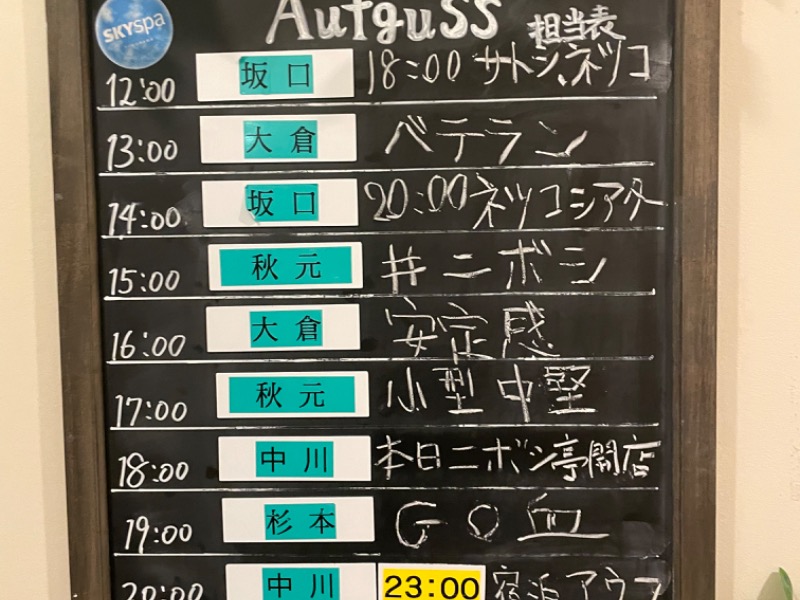 SKYspa Aufguss 担当表
12:00 坂口 18:00 サトシ、ネツコ
13:00 大倉 ベテラン
14:00 坂口 20:00 ネツコシアター
15:00 秋元 #ニボシ
16:00 大倉 安定感
17:00 秋元 小型中堅
18:00 中川 本日ニボシ亭開店
19:00 杉本 GO血
20:00 中川 23:00 宿浜アウフ